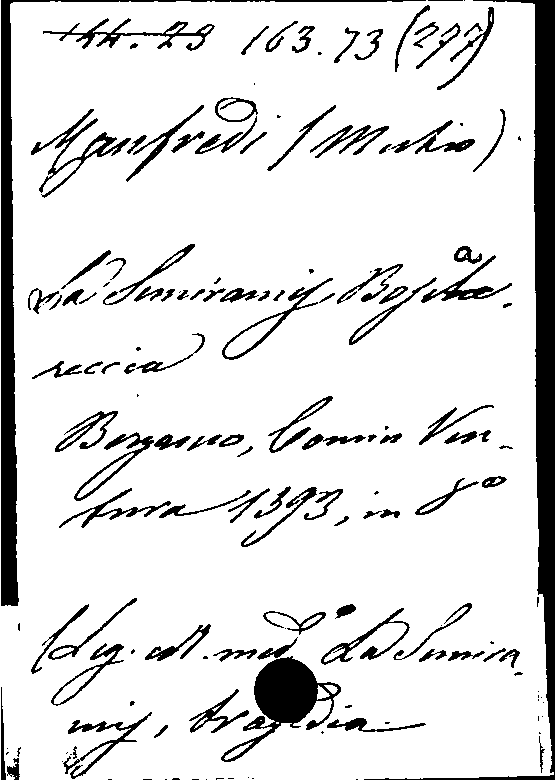 144.23 163.73 (277)
Manfredi (Mutio)
La Semiramis Bosca-
reccia
Bergamo, Comin Ven-
tura 1593, in 8°
(Leg. coll. med.° La Semira-
mis, tragedia.